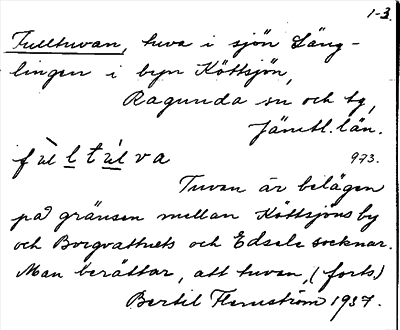 1-3.
Fulltuvan, tuva i sjön Läng-
lingen i byn Köttsjön,
Ragunda sn och tg,
Jämtl. län.
fùl t ùl va 973.
Tuvan är belägen
på gränsen mellan Köttsjöns by
och Borgvattnets och Edsele socknar.
Man berättar, att tuvan, (forts)
Bertil Flemström 1937.